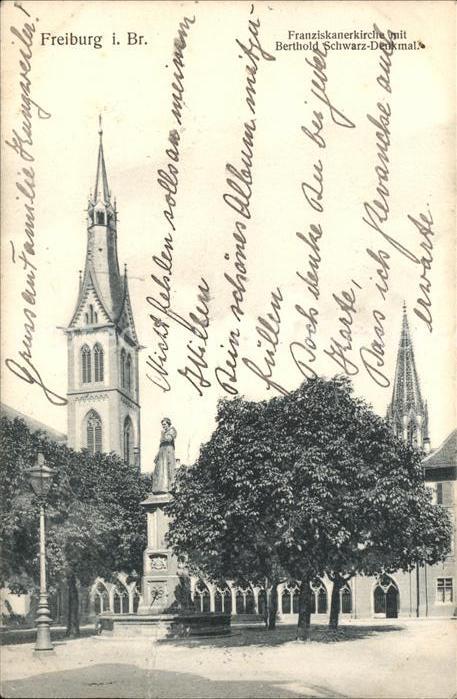 Freiburg i. Br.
Franziskanerkirche mit
Berthold Schwarz-Denkmal.
Gruss an Familie
Nicht fehlen solls an meinem
Willen
Dein schönes Album mitzu-
füllen
Doch denke Du bei jeder
Karte,
Dass ich Revanche auch
erwarte.